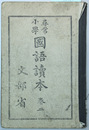 尋常
小學
國語讀本
卷一
文部省